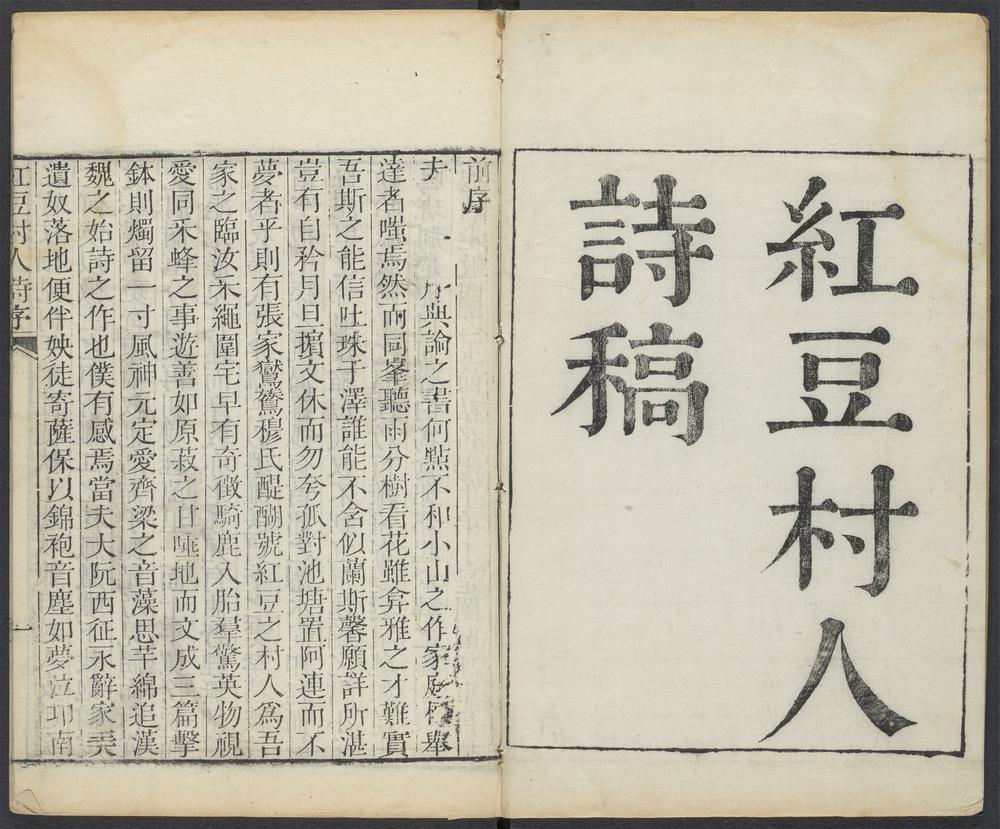 紅豆村人
詩稿
前序
夫序典論之書何㸃不和小山之作家庭標舉
達者嗤焉然而同峯聽雨分樹看花雖弇雅之才難實
吾斯之能信吐珠于澤誰能不含似蘭斯馨願詳所湛
豈有自矜月旦擯文休而勿夸孤對池塘置阿連而不
夢者乎則有張家鸑鷟穆氏醍醐號紅豆之村人為吾
家之臨汝禾繩圍宅早有奇徵騎鹿入胎羣驚英物視
愛同釆蜂之事遊善如原菽之甘唾地而文成三篇擊
鉢則燭留一寸風神元定愛齊梁之音藻思芊綿追漢
魏之始詩之作也僕有感焉當夫大阮西征永辭家衖
遺奴落地便伴姎徒寄薩保以錦袍音塵如夢泣卭南
紅豆村人詩序
一